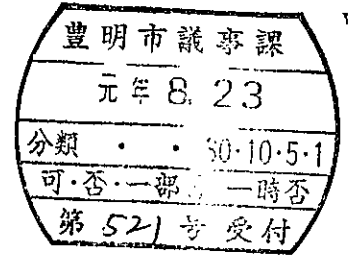 豊明市議事課
元年 8. 23
分類 ・ ・ 30・10・5・1
可・否・一部 一時否
第 521 号 受付